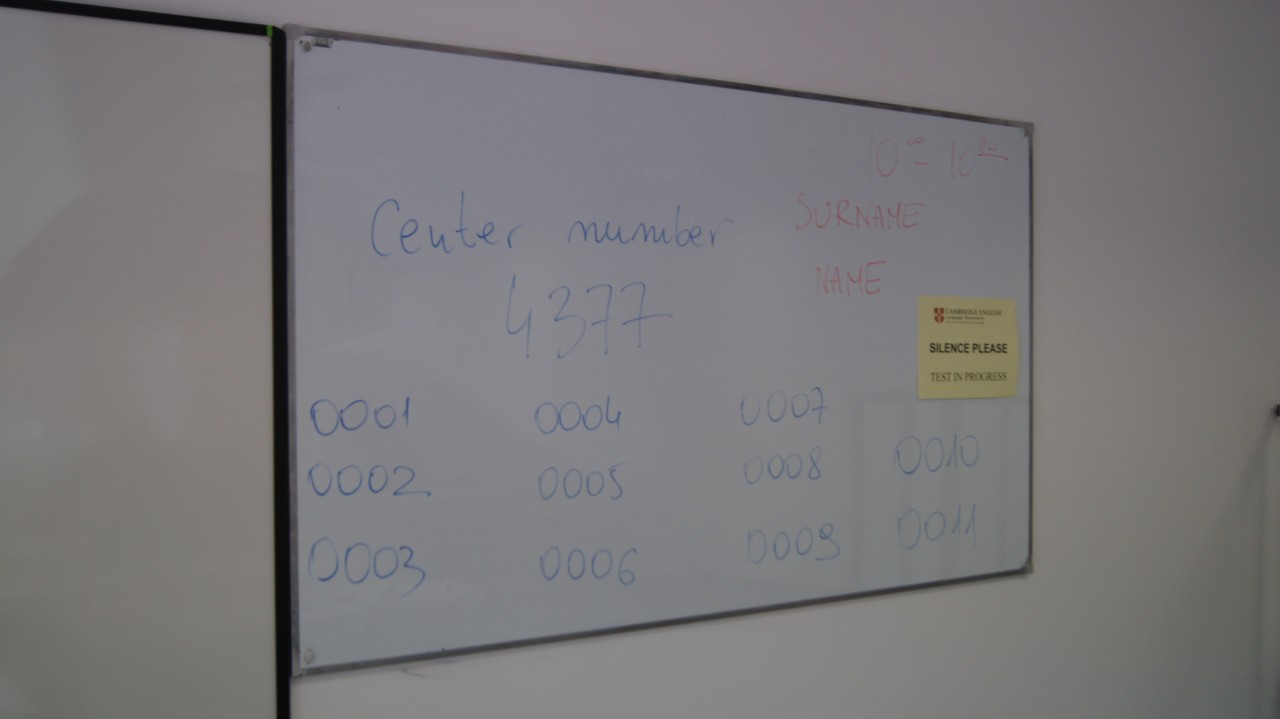 10⁰⁰ - 10²⁰
Center number
SURNAME
4377
NAME
CAMBRIDGE ENGLISH
Language Assessment
SILENCE PLEASE
TEST IN PROGRESS
0001 0004 0007
0002 0005 0008 0010
0003 0006 0009 0011